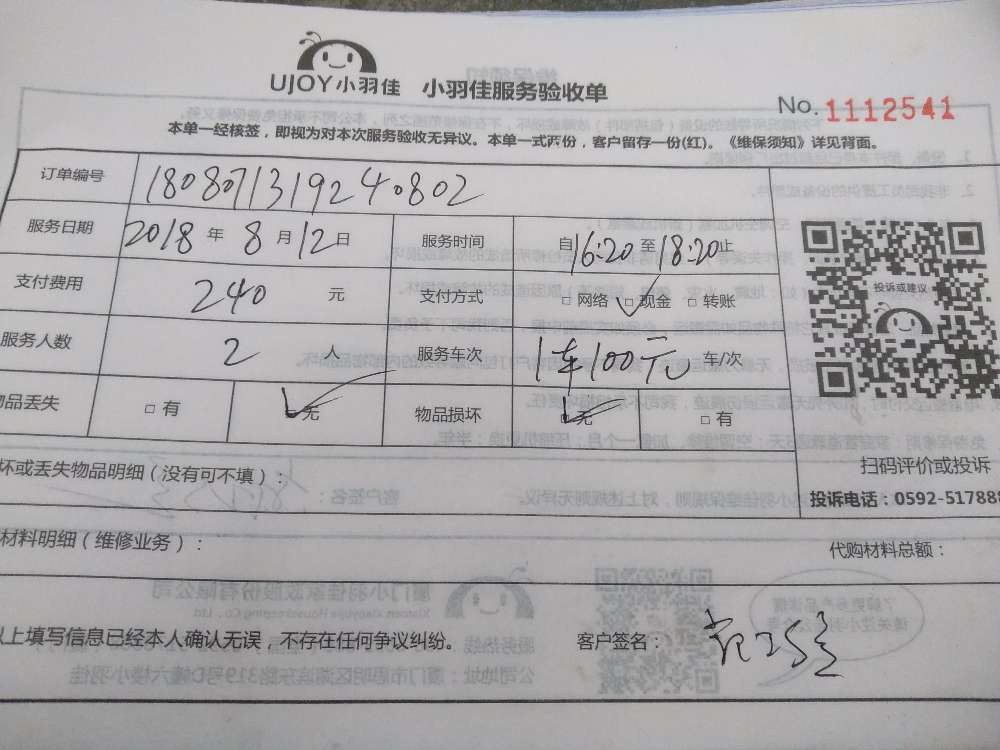 UJOY小羽佳 小羽佳服务验收单
No. 1112541
本单一经核签，即视为对本次服务验收无异议。本单一式两份，客户留存一份(红)。《维保须知》详见背面。
订单编号 180807131924080​2
服务日期 2018 年 8 月 12 日 服务时间 自 16:20 至 18:20 止
支付费用 240 元 支付方式 □ 网络 □ 现金 □ 转账
服务人数 2 人 服务车次 1车100元 车/次
品丢失 □ 有 无 物品损坏 无 □ 有
投诉或建议
扫码评价或投诉
投诉电话：0592-517888
坏或丢失物品明细（没有可不填）：
材料明细（维修业务）： 代购材料总额：
以上填写信息已经本人确认无误，不存在任何争议纠纷。 客户签名：